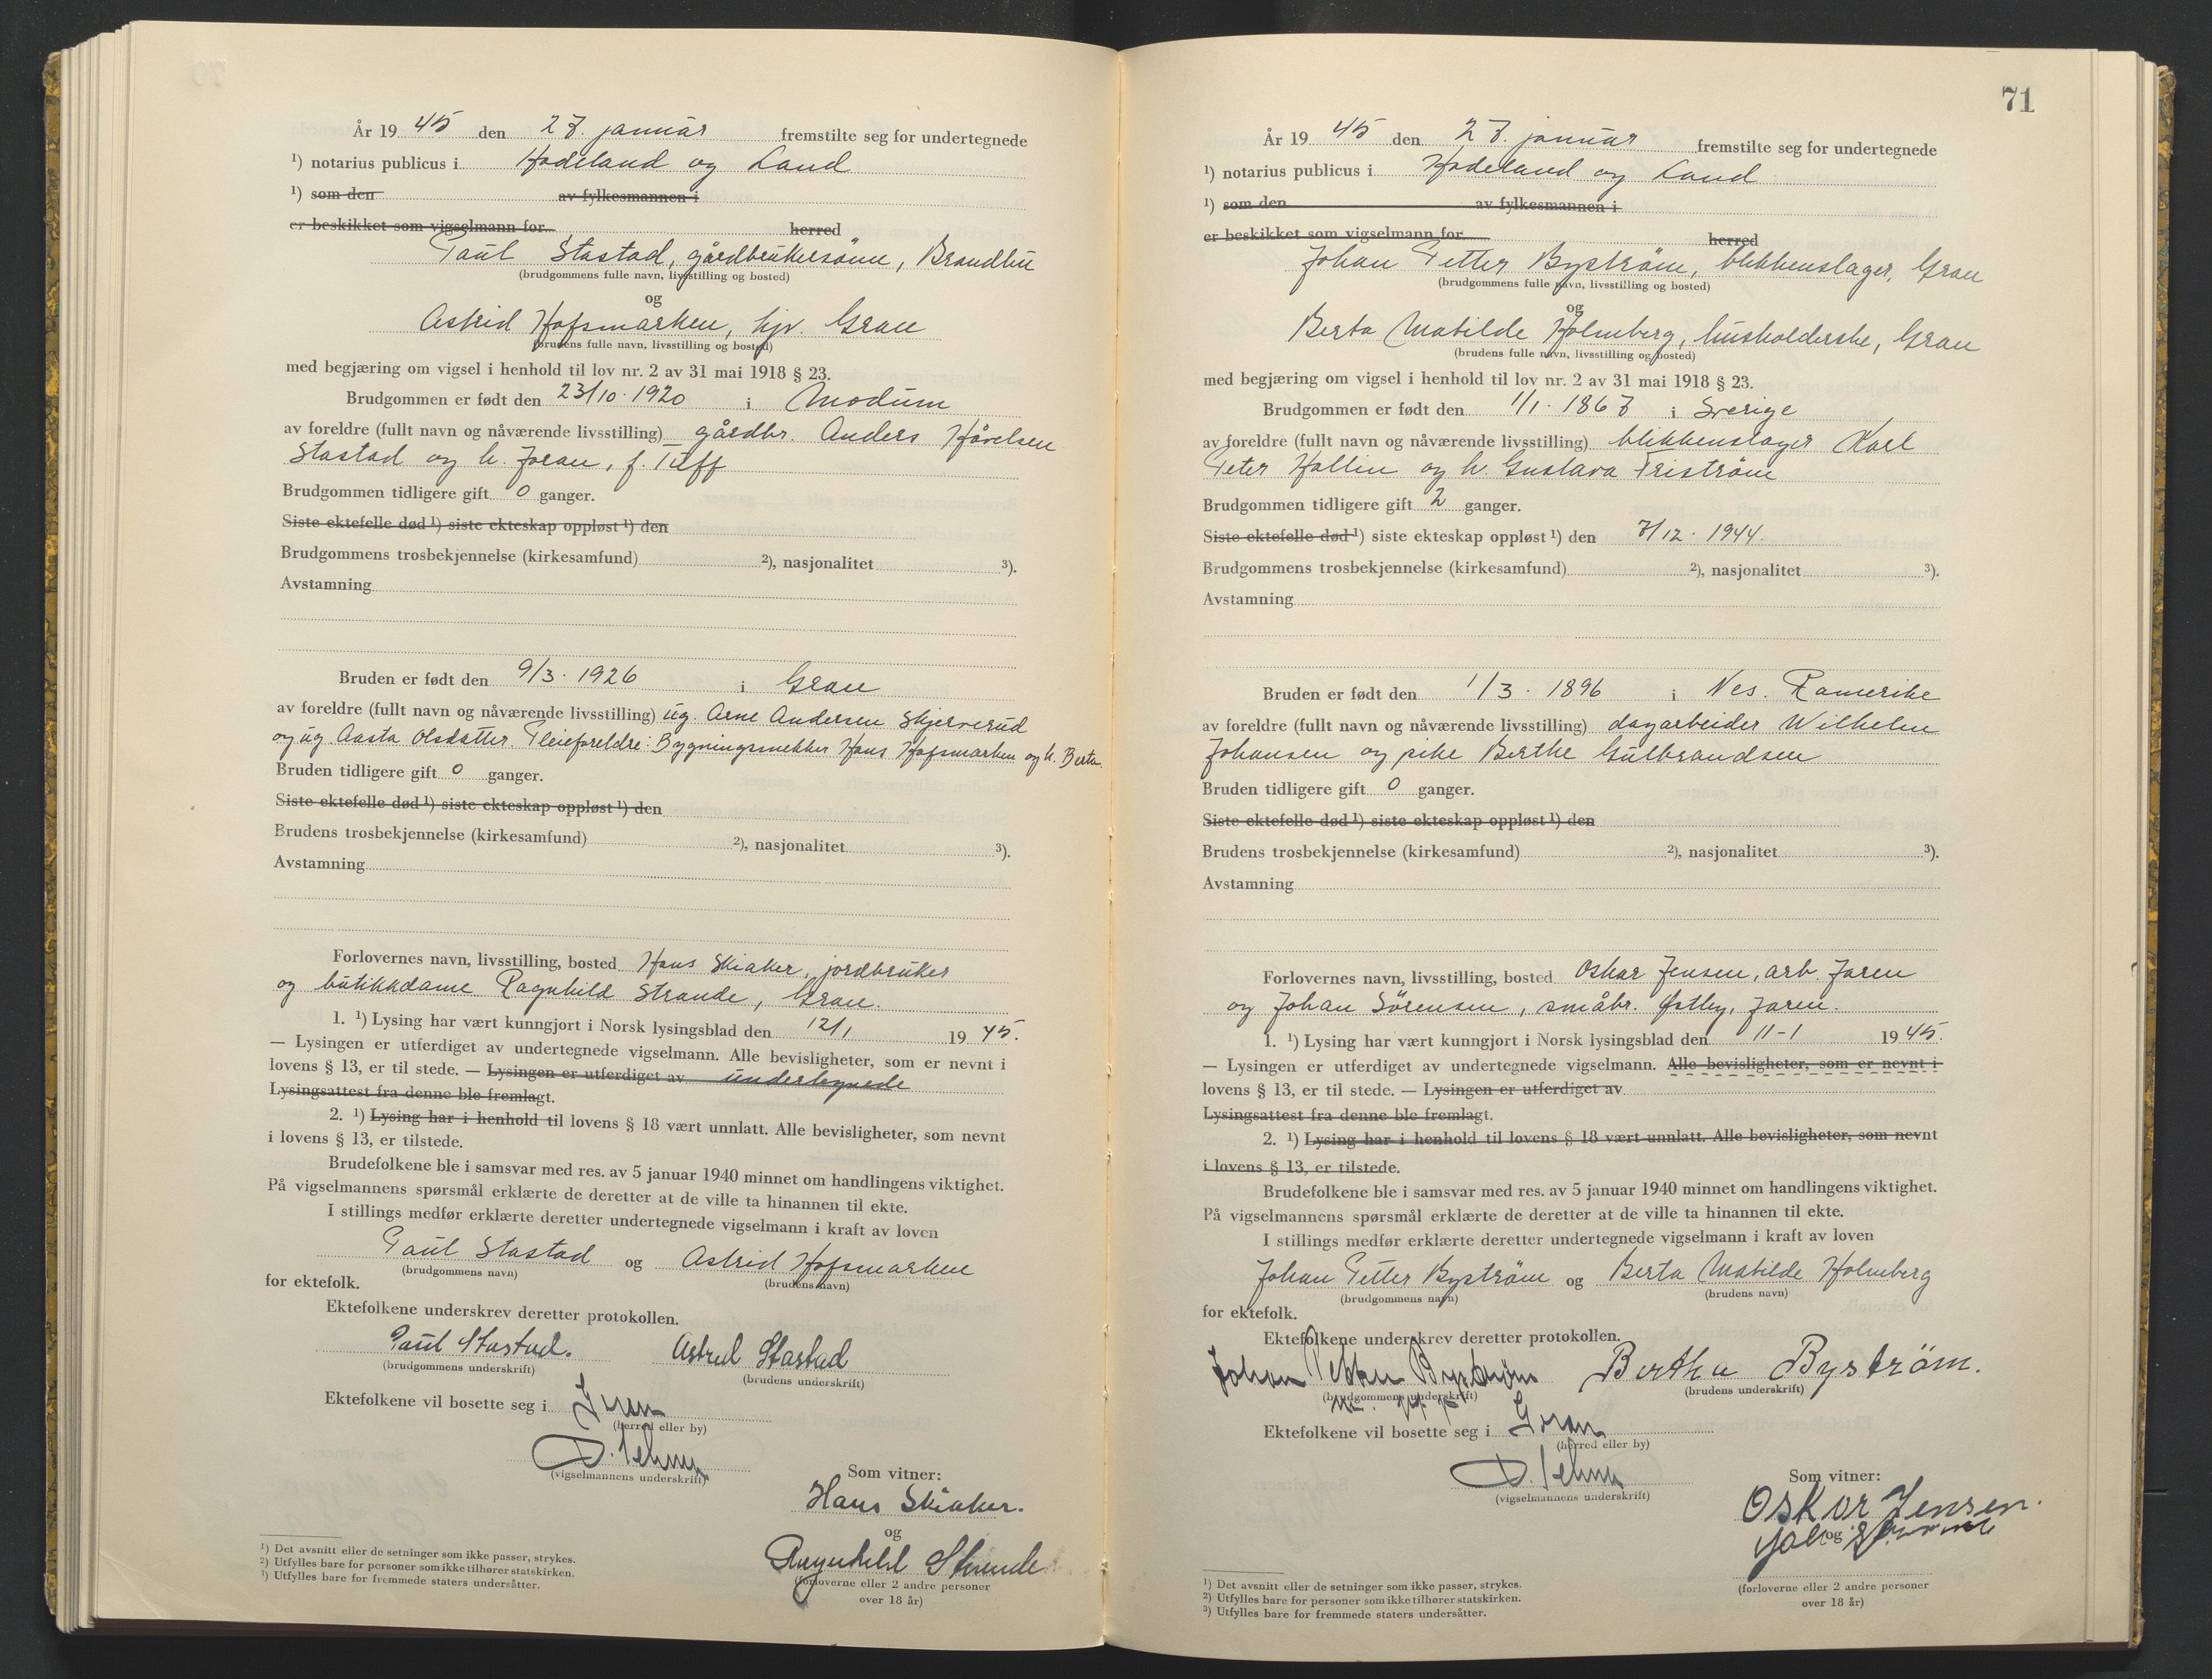 År 19 45 den 27. januar fremstilte seg for undertegnede
¹) notarius publicus i Hadeland og Land
¹) som den av fylkesmannen i
er beskikket som vigselmann for herred
Paul Stastad, gårdbrukersønn, Brandbu
(brudgommens fulle navn, livsstilling og bosted)
og
Astrid Hofsmarken, hjv. Gran
(brudens fulle navn, livsstilling og bosted)
med begjæring om vigsel i henhold til lov nr. 2 av 31 mai 1918 § 23.
Brudgommen er født den 23/10. 1920 i Modum
av foreldre (fullt navn og nåværende livsstilling) gårdbr. Anders Håvelsen
Stastad og h. Joran, f. Tuff
Brudgommen tidligere gift 0 ganger.
Siste ektefelle død ¹) siste ekteskap oppløst ¹) den
Brudgommens trosbekjennelse (kirkesamfund) ²), nasjonalitet ³).
Avstamning
Bruden er født den 9/3. 1926 i Gran
av foreldre (fullt navn og nåværende livsstilling) ug. Arne Andersen Skjerverud
og ug. Aasta Olsdatter. Pleieforeldre: Bygningssnekker Hans Hofsmarken og h. Berta.
Bruden tidligere gift 0 ganger.
Siste ektefelle død ¹) siste ekteskap oppløst ¹) den
Brudens trosbekjennelse (kirkesamfund) ²), nasjonalitet ³).
Avstamning
Forlovernes navn, livsstilling, bosted Hans Skiaker, jordbruker
og butikkdame Ragnhild Strande, Gran.
1. ¹) Lysing har vært kunngjort i Norsk lysingsblad den 12/1 19 45.
— Lysingen er utferdiget av undertegnede vigselmann. Alle bevisligheter, som er nevnt i
lovens § 13, er til stede. — Lysingen er utferdiget av undertegnede
Lysingsattest fra denne ble fremlagt.
2. ¹) Lysing har i henhold til lovens § 18 vært unnlatt. Alle bevisligheter, som nevnt
i lovens § 13, er tilstede.
Brudefolkene ble i samsvar med res. av 5 januar 1940 minnet om handlingens viktighet.
På vigselmannens spørsmål erklærte de deretter at de ville ta hinannen til ekte.
I stillings medfør erklærte deretter undertegnede vigselmann i kraft av loven
Paul Stastad og Astrid Hofsmarken
(brudgommens navn) (brudens navn)
for ektefolk.
Ektefolkene underskrev deretter protokollen.
Paul Stastad. Astrid Stastad
(brudgommens underskrift) (brudens underskrift)
Ektefolkene vil bosette seg i Gran
(herred eller by)
(vigselmannens underskrift)
Som vitner:
Hans Skiaker.
og
Ragnhild Strande
(forloverne eller 2 andre personer
over 18 år)
¹) Det avsnitt eller de setninger som ikke passer, strykes.
²) Utfylles bare for personer som ikke tilhører statskirken.
³) Utfylles bare for fremmede staters undersåtter.
71
År 19 45 den 27. januar fremstilte seg for undertegnede
¹) notarius publicus i Hadeland og Land
¹) som den av fylkesmannen i
er beskikket som vigselmann for herred
Johan Petter Byström, blikkenslager, Gran
(brudgommens fulle navn, livsstilling og bosted)
og
Berta Matilde Holmberg, husholderske, Gran
(brudens fulle navn, livsstilling og bosted)
med begjæring om vigsel i henhold til lov nr. 2 av 31 mai 1918 § 23.
Brudgommen er født den 1/1. 1867 i Sverige
av foreldre (fullt navn og nåværende livsstilling) blikkenslager Karl
Peter Hallin og h. Gustava Friström
Brudgommen tidligere gift 2 ganger.
Siste ektefelle død ¹) siste ekteskap oppløst ¹) den 7/12. 1944.
Brudgommens trosbekjennelse (kirkesamfund) ²), nasjonalitet ³).
Avstamning
Bruden er født den 1/3. 1896 i Nes. Romerike
av foreldre (fullt navn og nåværende livsstilling) dagarbeider Wilhelm
Johansen og pike Berthe Gulbrandsen
Bruden tidligere gift 0 ganger.
Siste ektefelle død ¹) siste ekteskap oppløst ¹) den
Brudens trosbekjennelse (kirkesamfund) ²), nasjonalitet ³).
Avstamning
Forlovernes navn, livsstilling, bosted Oskar Jensen, arb. Jaren
og Johan Sörensen, småbr. Østby, Jaren.
1. ¹) Lysing har vært kunngjort i Norsk lysingsblad den 11-1 19 45.
— Lysingen er utferdiget av undertegnede vigselmann. Alle bevisligheter, som er nevnt i
lovens § 13, er til stede. — Lysingen er utferdiget av
Lysingsattest fra denne ble fremlagt.
2. ¹) Lysing har i henhold til lovens § 18 vært unnlatt. Alle bevisligheter, som nevnt
i lovens § 13, er tilstede.
Brudefolkene ble i samsvar med res. av 5 januar 1940 minnet om handlingens viktighet.
På vigselmannens spørsmål erklærte de deretter at de ville ta hinannen til ekte.
I stillings medfør erklærte deretter undertegnede vigselmann i kraft av loven
Johan Petter Byström og Berta Matilde Holmberg
(brudgommens navn) (brudens navn)
for ektefolk.
Ektefolkene underskrev deretter protokollen.
Johan Petter Byström Bertha Byström.
(brudgommens underskrift) (brudens underskrift)
Ektefolkene vil bosette seg i Gran
(herred eller by)
(vigselmannens underskrift)
Som vitner:
Oskar Jensen.
og
(forloverne eller 2 andre personer
over 18 år)
¹) Det avsnitt eller de setninger som ikke passer, strykes.
²) Utfylles bare for personer som ikke tilhører statskirken.
³) Utfylles bare for fremmede staters undersåtter.